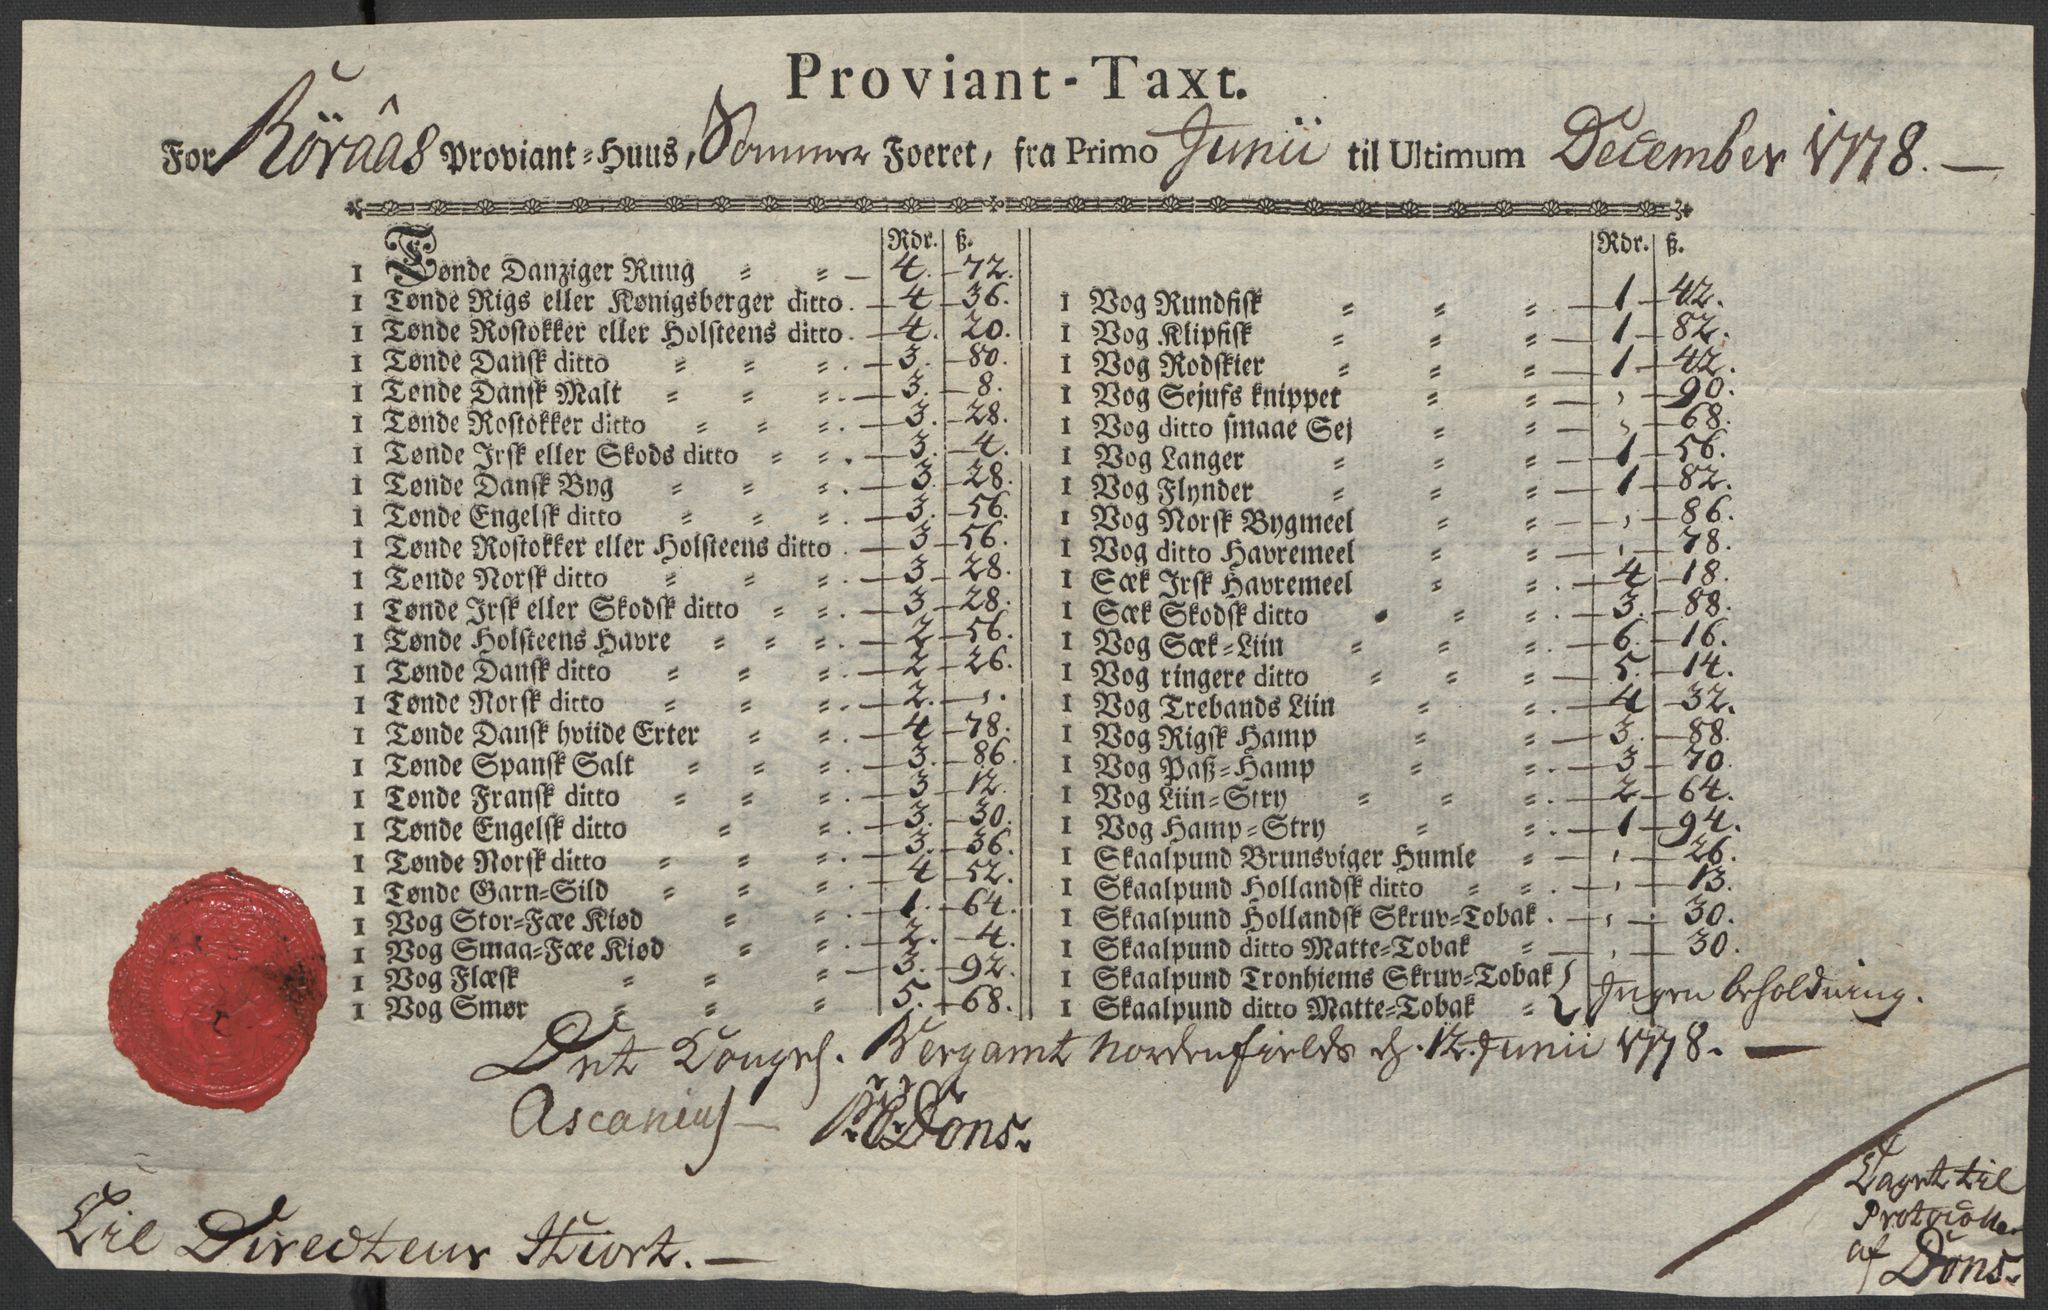 Proviant-Taxt.
For Röraas Proviant-Huus, Sommer Foeret, fra Primo Junii til Ultimum December 1778. —
Rdr. ß.
1 Tønde Danziger Ruug 4. 72.
1 Tønde Rigs eller Kønigsberger ditto. 4 36.
1 Tønde Rostokker eller Holsteens ditto. 4. 20.
1 Tønde Dansk ditto 3. 80.
1 Tønde Dansk Malt 3. 8.
1 Tønde Rostokker ditto 3. 28.
1 Tønde Irsk eller Skods ditto 3. 4.
1 Tønde Dansk Byg 3. 28.
1 Tønde Engelsk ditto 3. 56.
1 Tønde Rostokker eller Holsteens ditto 3 56.
1 Tønde Norsk ditto 3 28.
1 Tønde Irsk eller Skodsk ditto 3 28.
1 Tønde Holsteens Havre 2 56.
1 Tønde Dansk ditto 2 26.
1 Tønde Norsk ditto 2. ,.
1 Tønde Dansk hviide Erter 4 78.
1 Tønde Spansk Salt 3. 86.
1 Tønde Fransk ditto 3 12.
1 Tønde Engelsk ditto 3. 30.
1 Tønde Norsk ditto 3. 36.
1 Tønde Garn-Sild 4 52.
1 Vog Stor-Fæe Kiød 1. 64.
1 Vog Smaa-Fæe Kiød 2. 4.
1 Vog Flæsk 3. 92.
1 Vog Smør 5. 68.
Rdr. ß.
1 Vog Rundfisk 1 42.
1 Vog Klipfisk 1 82.
1 Vog Rodskier 1 42.
1 Vog Sejufs knippet , 90.
1 Vog ditto smaae Sej , 68.
1 Vog Langer 1 56.
1 Vog Flynder 1 82.
1 Vog Norsk Bygmeel , 86.
1 Vog ditto Havremeel , 78.
1 Sæk Irsk Havremeel 4 18.
1 Sæk Skodsk ditto 3. 88.
1 Vog Sæk-Liin 6. 16.
1 Vog ringere ditto 5. 14.
1 Vog Trebands Liin 4 32.
1 Vog Rigsk Hamp 3. 88.
1 Vog Paß-Hamp 3 70.
1 Vog Liin-Stry 2 64.
1 Vog Hamp-Stry 1 94.
1 Skaalpund Brunsviger Humle , 26.
1 Skaalpund Hollandsk ditto , 13.
1 Skaalpund Hollandsk Skruv-Tobak , 30.
1 Skaalpund ditto Matte-Tobak , 30.
1 Skaalpund Tronhiems Skruv-Tobak
1 Skaalpund ditto Matte-Tobak
Ingen beholdning.
Det Kongel. Bergamt Nordenfields d. 12. Junii 1778. —
Ascanius — Dons.
Til Directeur Hiort. —
Taget til
Protocollen
af Dons.